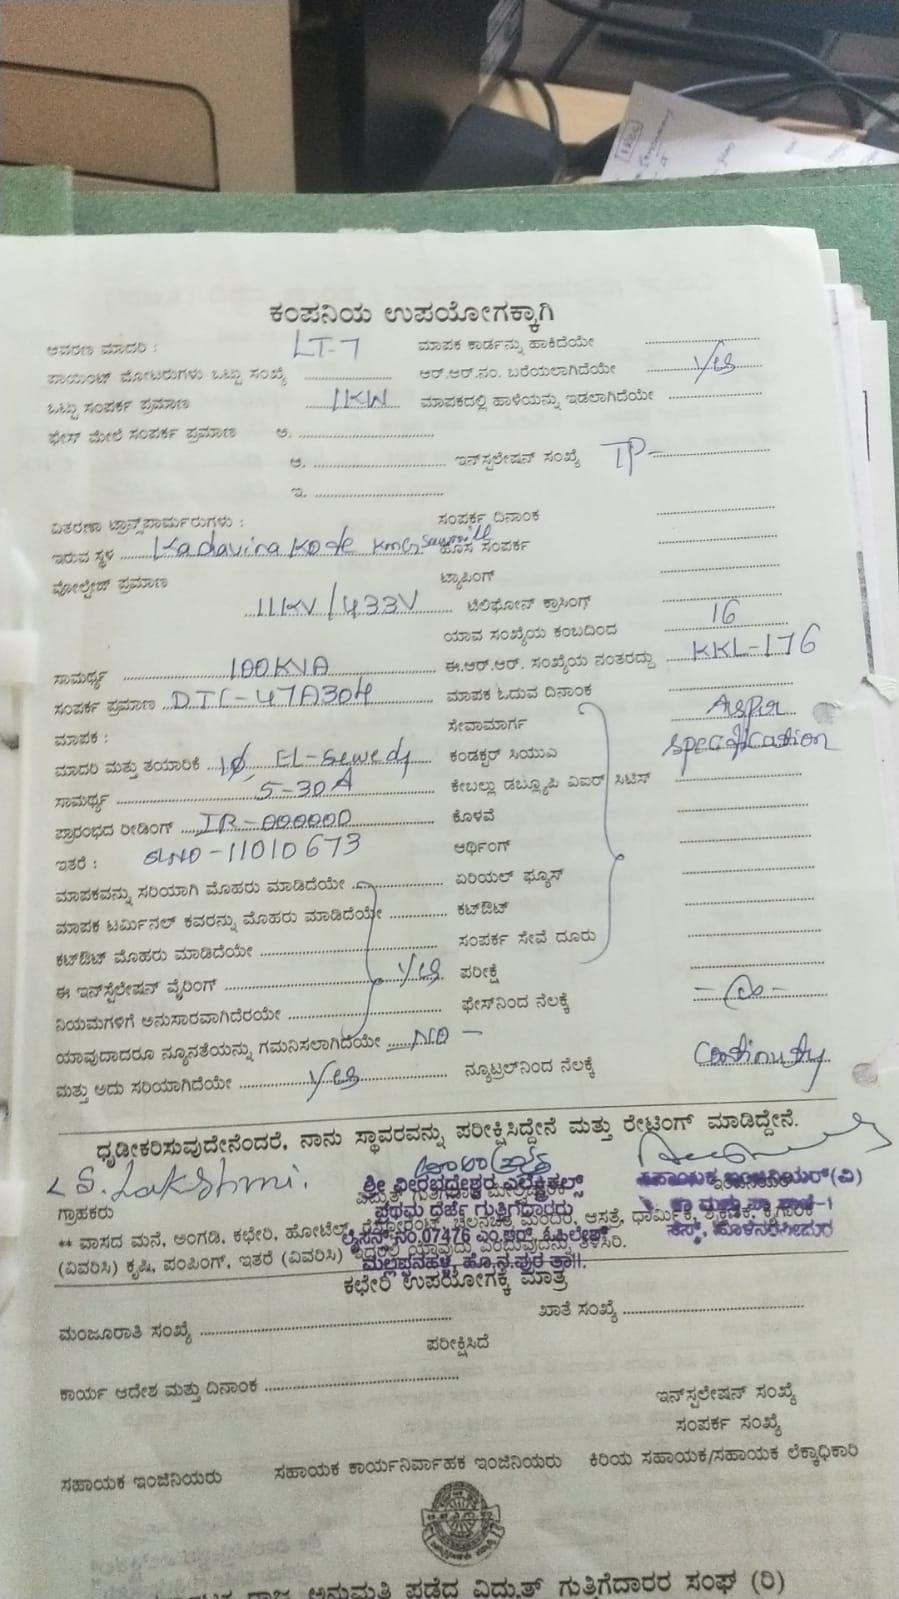 ಕಂಪನಿಯ ಉಪಯೋಗಕ್ಕಾಗಿ
ಆವರಣ ಮಾದರಿ : LT-7 ಮಾಪಕ ಕಾರ್ಡನ್ನು ಹಾಕಿದೆಯೇ
ಪಾಯಿಂಟ್ ಮೋಟರುಗಳು ಒಟ್ಟು ಸಂಖ್ಯೆ ಆರ್.ಆರ್.ನಂ. ಬರೆಯಲಾಗಿದೆಯೇ Yes
ಒಟ್ಟು ಸಂಪರ್ಕ ಪ್ರಮಾಣ 1KW ಮಾಪಕದಲ್ಲಿ ಹಾಳೆಯನ್ನು ಇಡಲಾಗಿದೆಯೇ
ಫೇಸ್ ಮೇಲೆ ಸಂಪರ್ಕ ಪ್ರಮಾಣ ಅ.
ಆ. ಇನ್‌ಸ್ಪಲೇಷನ್ ಸಂಖ್ಯೆ TP-
ಇ.
ವಿತರಣಾ ಟ್ರಾನ್ಸ್‌ಪಾರ್ಮರುಗಳು : ಸಂಪರ್ಕ ದಿನಾಂಕ
ಇರುವ ಸ್ಥಳ Kadavina Kote ಹೊಸ ಸಂಪರ್ಕ
ವೋಲ್ಟೇಜ್ ಪ್ರಮಾಣ ಟ್ಯಾಪಿಂಗ್
11KV/433V ಟೆಲಿಫೋನ್ ಕ್ರಾಸಿಂಗ್
ಯಾವ ಸಂಖ್ಯೆಯ ಕಂಬದಿಂದ 16
ಸಾಮರ್ಥ್ಯ 100KVA ಈ.ಆರ್.ಆರ್. ಸಂಖ್ಯೆಯ ನಂತರದ್ದು KKL-176
ಸಂಪರ್ಕ ಪ್ರಮಾಣ DTC-47A304 ಮಾಪಕ ಓದುವ ದಿನಾಂಕ
ಮಾಪಕ : ಸೇವಾಮಾರ್ಗ As per
ಮಾದರಿ ಮತ್ತು ತಯಾರಿಕೆ 1Ø, El-Sewedy ಕಂಡಕ್ಟರ್ ಸಿಯುಎ Specification
ಸಾಮರ್ಥ್ಯ 5-30A ಕೇಬಲ್ಲು ಡಬ್ಲ್ಯೂಪಿ ವಿಐಆರ್ ಸಿಟಿಸ್
ಪ್ರಾರಂಭದ ರೀಡಿಂಗ್ IR-000000 ಕೊಳವೆ
ಇತರೆ : SLNO-11010673 ಆರ್ಥಿಂಗ್
ಮಾಪಕವನ್ನು ಸರಿಯಾಗಿ ಮೊಹರು ಮಾಡಿದೆಯೇ ಏರಿಯಲ್ ಫ್ಯೂಸ್
ಮಾಪಕ ಟರ್ಮಿನಲ್ ಕವರನ್ನು ಮೊಹರು ಮಾಡಿದೆಯೇ ಕಟ್‌ಔಟ್
ಕಟ್‌ಔಟ್ ಮೊಹರು ಮಾಡಿದೆಯೇ ಸಂಪರ್ಕ ಸೇವೆ ದೂರು
ಈ ಇನ್‌ಸ್ಟಲೇಷನ್ ವೈರಿಂಗ್ Yes ಪರೀಕ್ಷೆ
ನಿಯಮಗಳಿಗೆ ಅನುಸಾರವಾಗಿದೆರಯೇ ಫೇಸ್‌ನಿಂದ ನೆಲಕ್ಕೆ
ಯಾವುದಾದರೂ ನ್ಯೂನತೆಯನ್ನು ಗಮನಿಸಲಾಗಿದೆಯೇ NO -
ಮತ್ತು ಅದು ಸರಿಯಾಗಿದೆಯೇ Yes ನ್ಯೂಟ್ರಲ್‌ನಿಂದ ನೆಲಕ್ಕೆ Continuty
ಧೃಡೀಕರಿಸುವುದೇನೆಂದರೆ, ನಾನು ಸ್ಥಾವರವನ್ನು ಪರೀಕ್ಷಿಸಿದ್ದೇನೆ ಮತ್ತು ರೇಟಿಂಗ್ ಮಾಡಿದ್ದೇನೆ.
S. Lakshmi.
ಶ್ರೀ ವೀರಭದ್ರೇಶ್ವರ ಎಲೆಕ್ಟ್ರಿಕಲ್ಸ್ ಸಹಾಯಕ ಇಂಜಿನಿಯರ್(ವಿ)
ಗ್ರಾಹಕರು ಪ್ರಥಮ ದರ್ಜೆ ಗುತ್ತಿಗೆದಾರರು
ಲೈಸೆನ್ಸ್ ನಂ.07476
** ವಾಸದ ಮನೆ, ಅಂಗಡಿ, ಕಛೇರಿ, ಹೋಟೆಲ್, ಆಸತ್ರೆ, ಧಾರ್ಮಿಕ, ಶೈಕ್ಷಣಿಕ, ಕೈಗಾರಿಕೆ
(ವಿವರಿಸಿ) ಕೃಷಿ, ಪಂಪಿಂಗ್, ಇತರೆ (ವಿವರಿಸಿ) ಇದರಲ್ಲಿ ಯಾವುದು ಎಂಬುವುದನ್ನು ತಿಳಿಸಿರಿ.
ಕಛೇರಿ ಉಪಯೋಗಕ್ಕೆ ಮಾತ್ರ
ಮಂಜೂರಾತಿ ಸಂಖ್ಯೆ ಖಾತೆ ಸಂಖ್ಯೆ
ಪರೀಕ್ಷಿಸಿದೆ
ಕಾರ್ಯ ಆದೇಶ ಮತ್ತು ದಿನಾಂಕ
ಇನ್‌ಸ್ಪಲೇಷನ್ ಸಂಖ್ಯೆ
ಸಂಪರ್ಕ ಸಂಖ್ಯೆ
ಸಹಾಯಕ ಇಂಜಿನಿಯರು ಸಹಾಯಕ ಕಾರ್ಯನಿರ್ವಾಹಕ ಇಂಜಿನಿಯರು ಕಿರಿಯ ಸಹಾಯಕ/ಸಹಾಯಕ ಲೆಕ್ಕಾಧಿಕಾರಿ
ರಾಜ್ಯ ಅನುಮತಿ ಪಡೆದ ವಿದ್ಯುತ್ ಗುತ್ತಿಗೆದಾರರ ಸಂಘ (ರಿ)